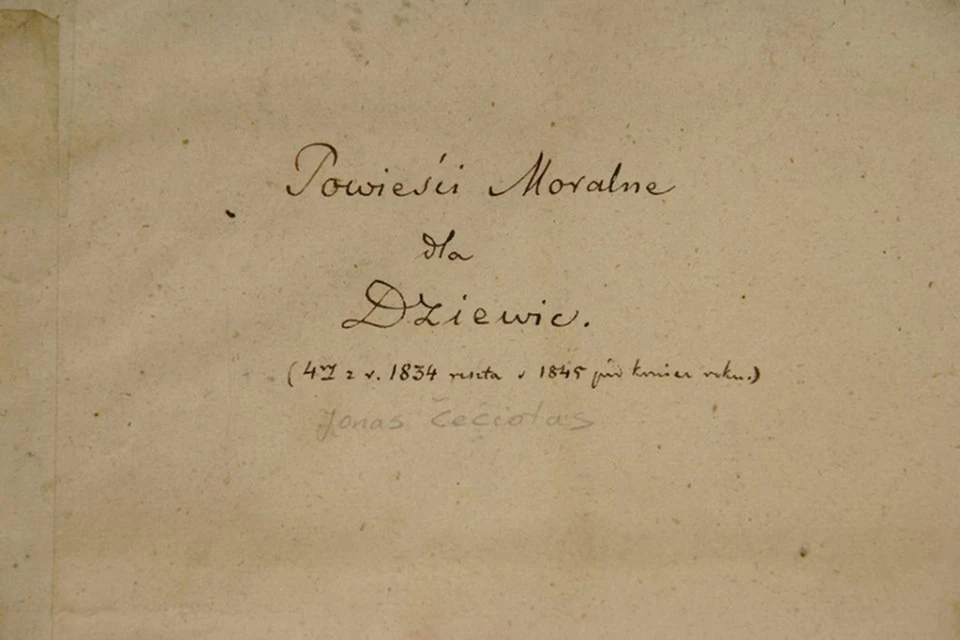 Powieści Moralne
dla
Dziewic.
(4ry z r. 1834 reszta 1845 koniec roku.)
Jonas Čečiotas